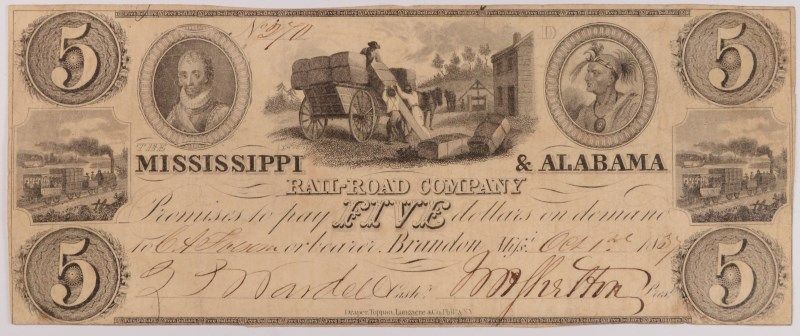 5 5
D
THE
MISSISSIPPI & ALABAMA
RAIL-ROAD COMPANY
Promises to pay FIVE dollars on demand
to or bearer, Brandon, Miss. Oct 1837
Cash. Pres.
5 5
Draper, Toppan, Longacre & Co. Phila. & N.Y.